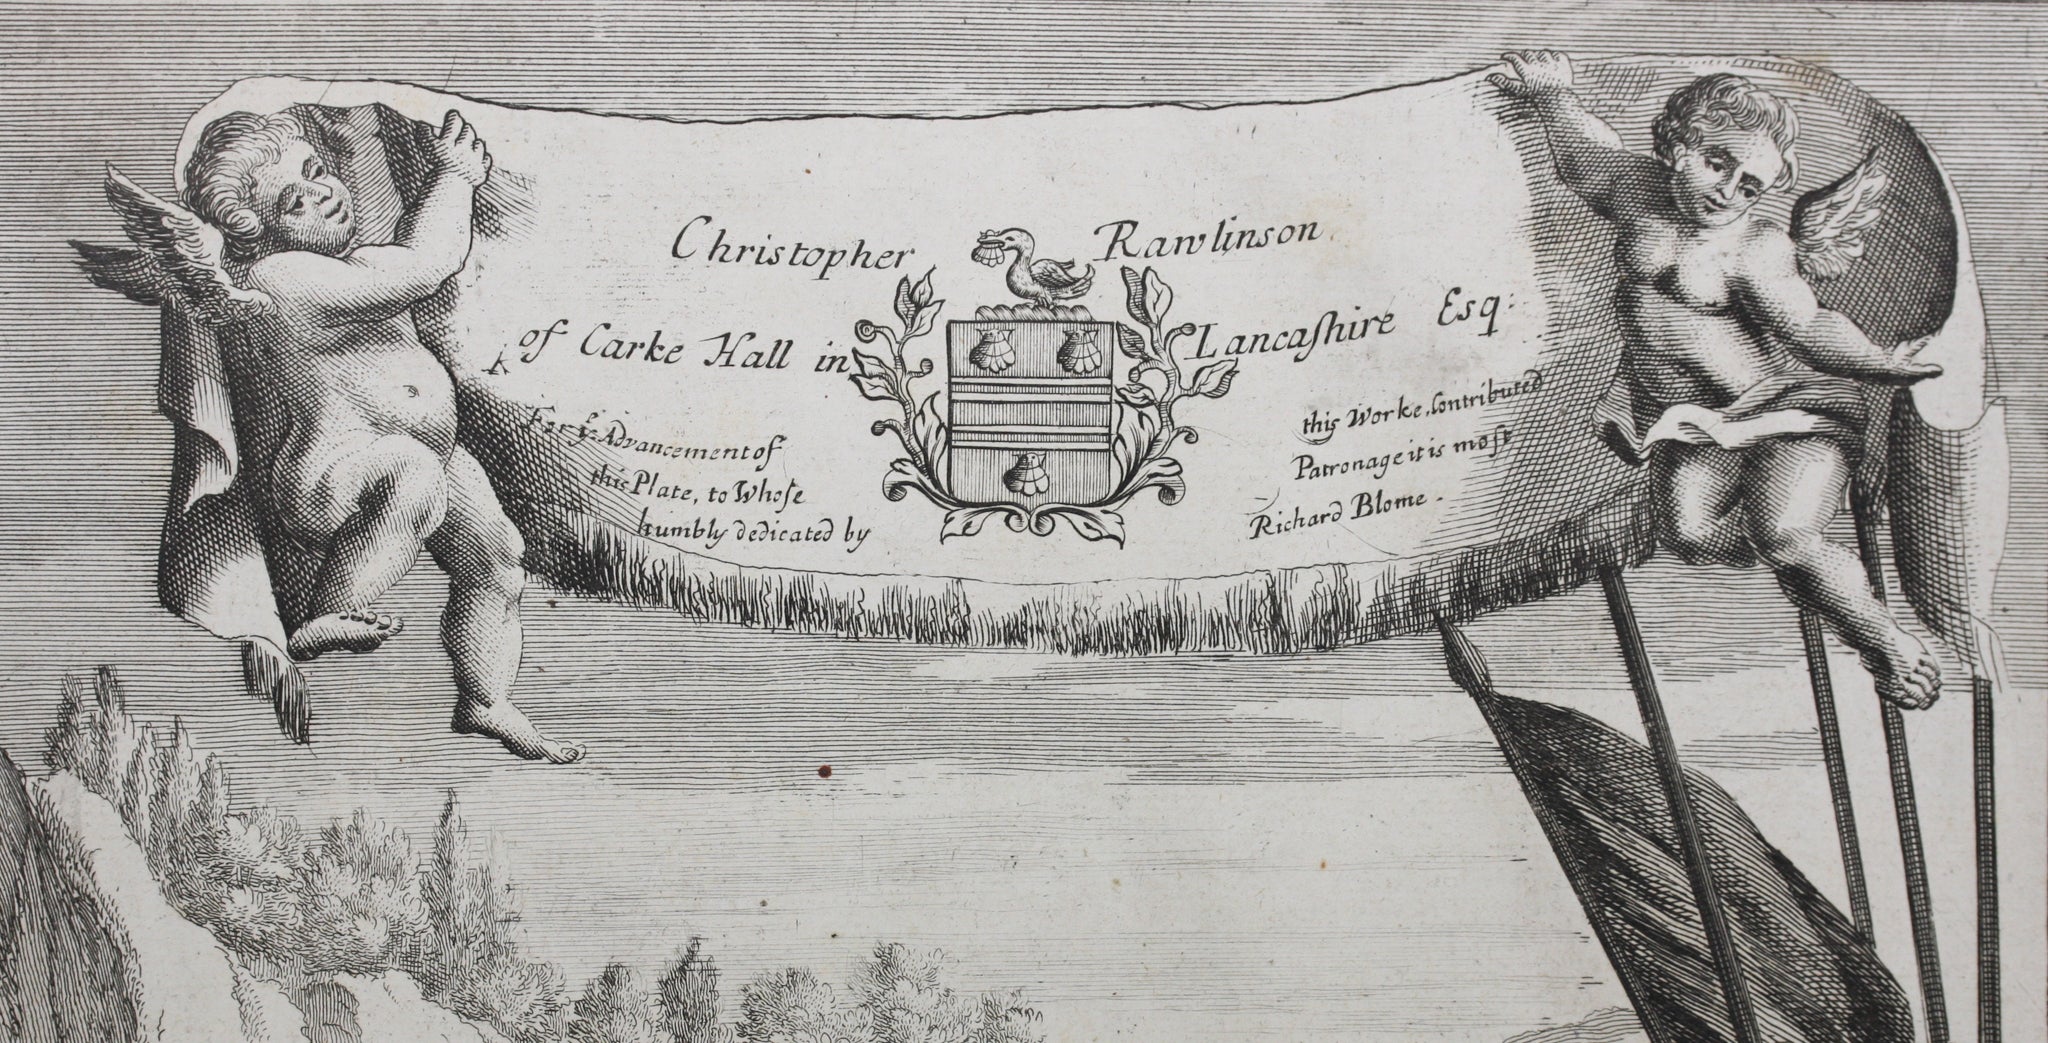 Christopher Rawlinson
of Carke Hall in Lancaſhire Esq:
For yͤ Advancement of this Worke, Contributed
this Plate, to Whoſe Patronage it is moſt
humbly dedicated by Richard Blome.